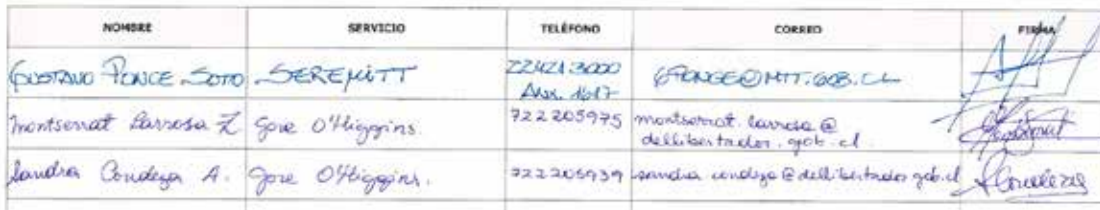 NOMBRE SERVICIO TELÉFONO CORREO FIRMA
GUSTAVO PONCE SOTO SEREMITT 224213000 GPONCE@MTT.GOB.CL
Anx. 1617
Montserrat Larrosa Z Gore O'Higgins. 722205975 montserrat.larrosa@
dellibertador.gob.cl
Sandra Condeza A. Gore O'Higgins. 722205939 sandra.condeza@dellibertador.gob.cl